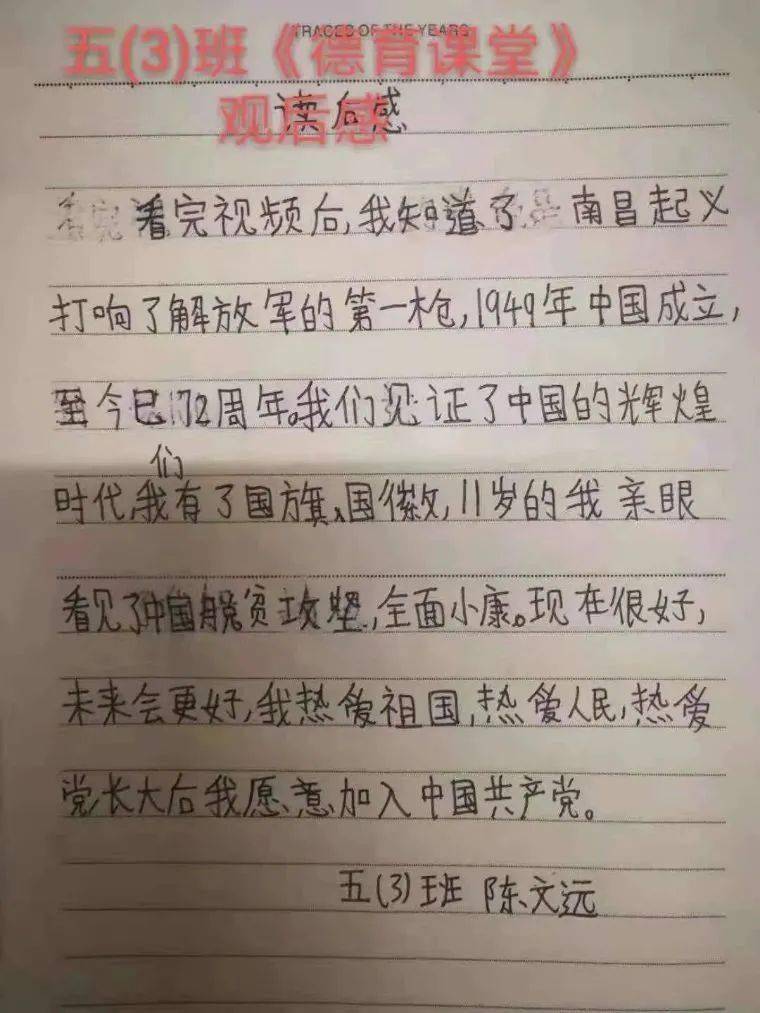 TRACES OF THE YEARS
五(3)班《德育课堂》
观后感
读后感
看完视频后,我知道了 南昌起义
打响了解放军的第一枪,1949年中国成立,
至今已72周年。我们见证了中国的辉煌
们
时代,我有了国旗、国徽,11岁的我亲眼
看见了中国脱贫攻坚,全面小康。现在很好,
未来会更好,我热爱祖国,热爱人民,热爱
党,长大后我愿意加入中国共产党。
五(3)班 陈文远